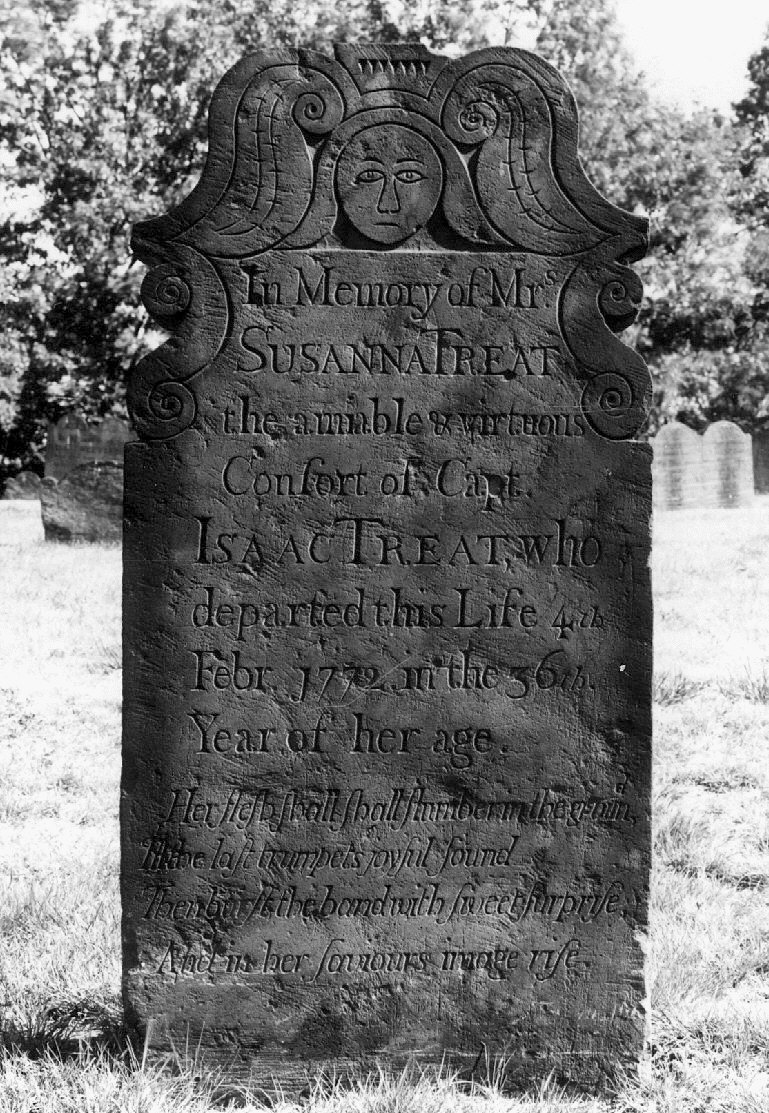 In Memory of Mrs.
SUSANNA TREAT
the amiable & virtuous
Conſort of Capt.
ISAAC TREAT, who
departed this Life 4th
Febr. 1772 in the 36th.
Year of her age.
Her fleſh ſhall ſhall ſlumber in the groun,d
Till the laſt trumpets joyful ſound
Then burſt the band with ſweet ſurpriſe,
And in her ſaviours image riſe.